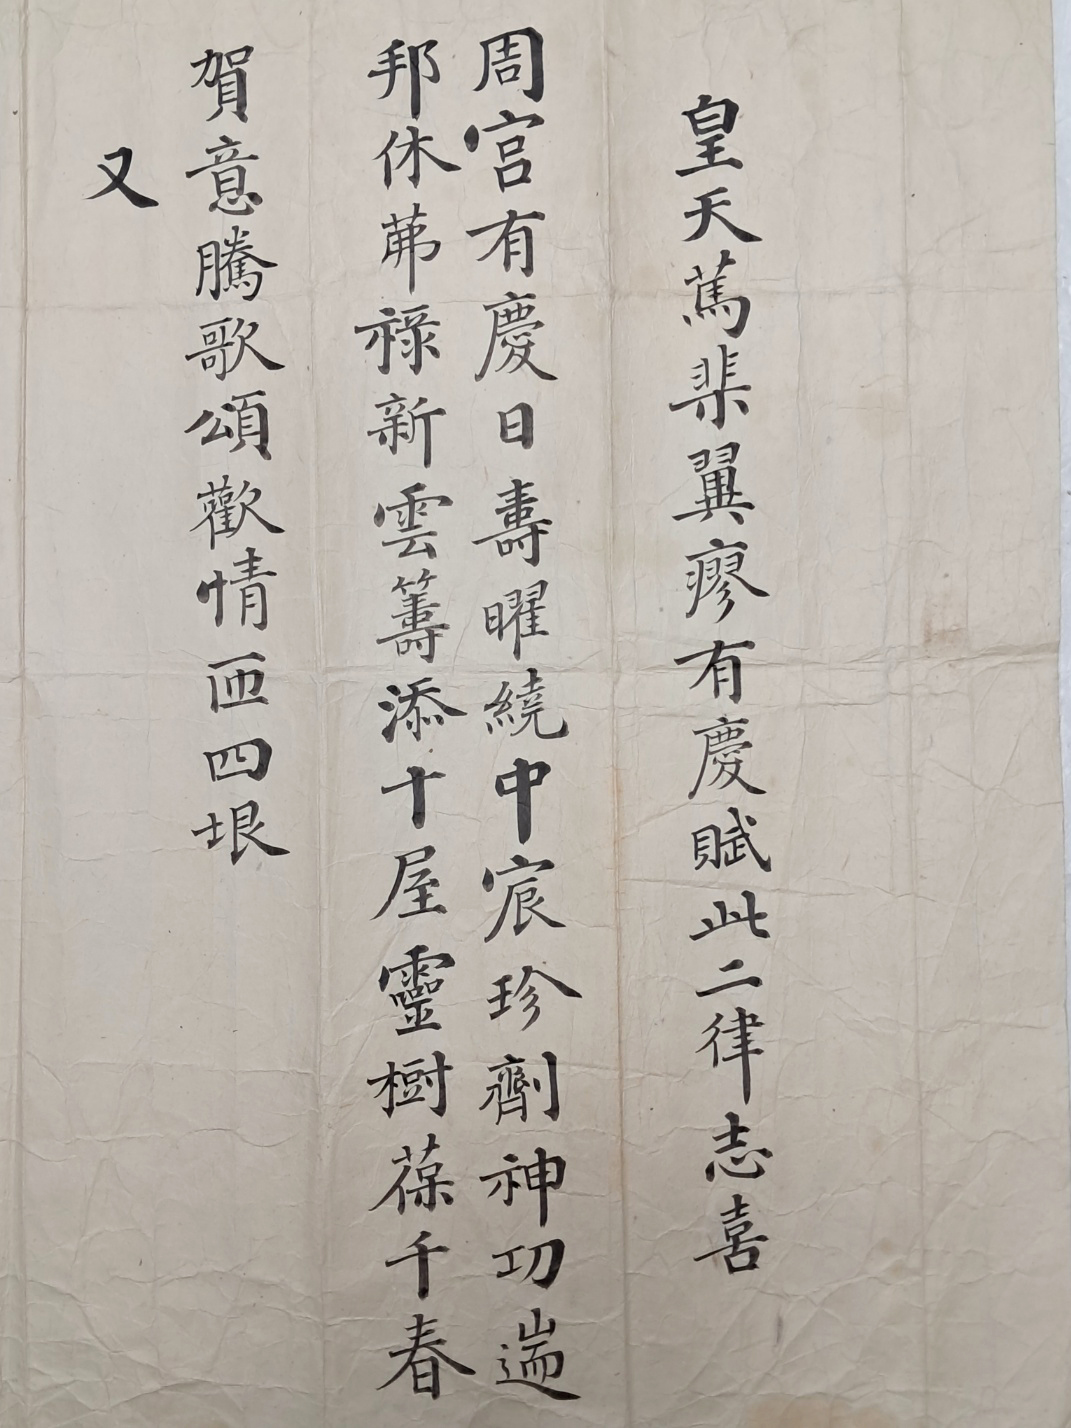 皇天篤棐翼瘳有慶賦此二律志喜
周宮有慶日壽曜繞中宸珍劑神功遄
邦休茀祿新雲籌添十屋靈樹葆千春
賀意騰歌頌歡情匝四垠
又